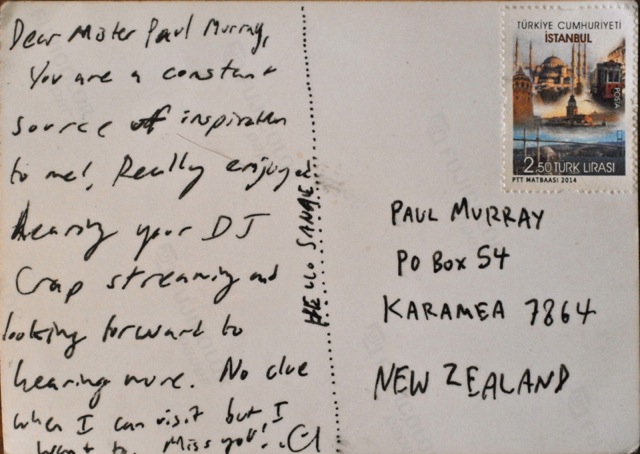 Dear Mister Paul Murray,
You are a constant
source of inspiration
to me!, Really enjoyed
hearing your DJ
Crap streaming and
looking forward to
hearing more. No clue
when I can visit but I
want to. Miss you!
HELLO SANAE
TÜRKİYE CUMHURİYETİ
İSTANBUL
POSTA
2.50 TÜRK LİRASI
PTT MATBAASI 2014
PAUL MURRAY
PO BOX 54
KARAMEA 7864
NEW ZEALAND